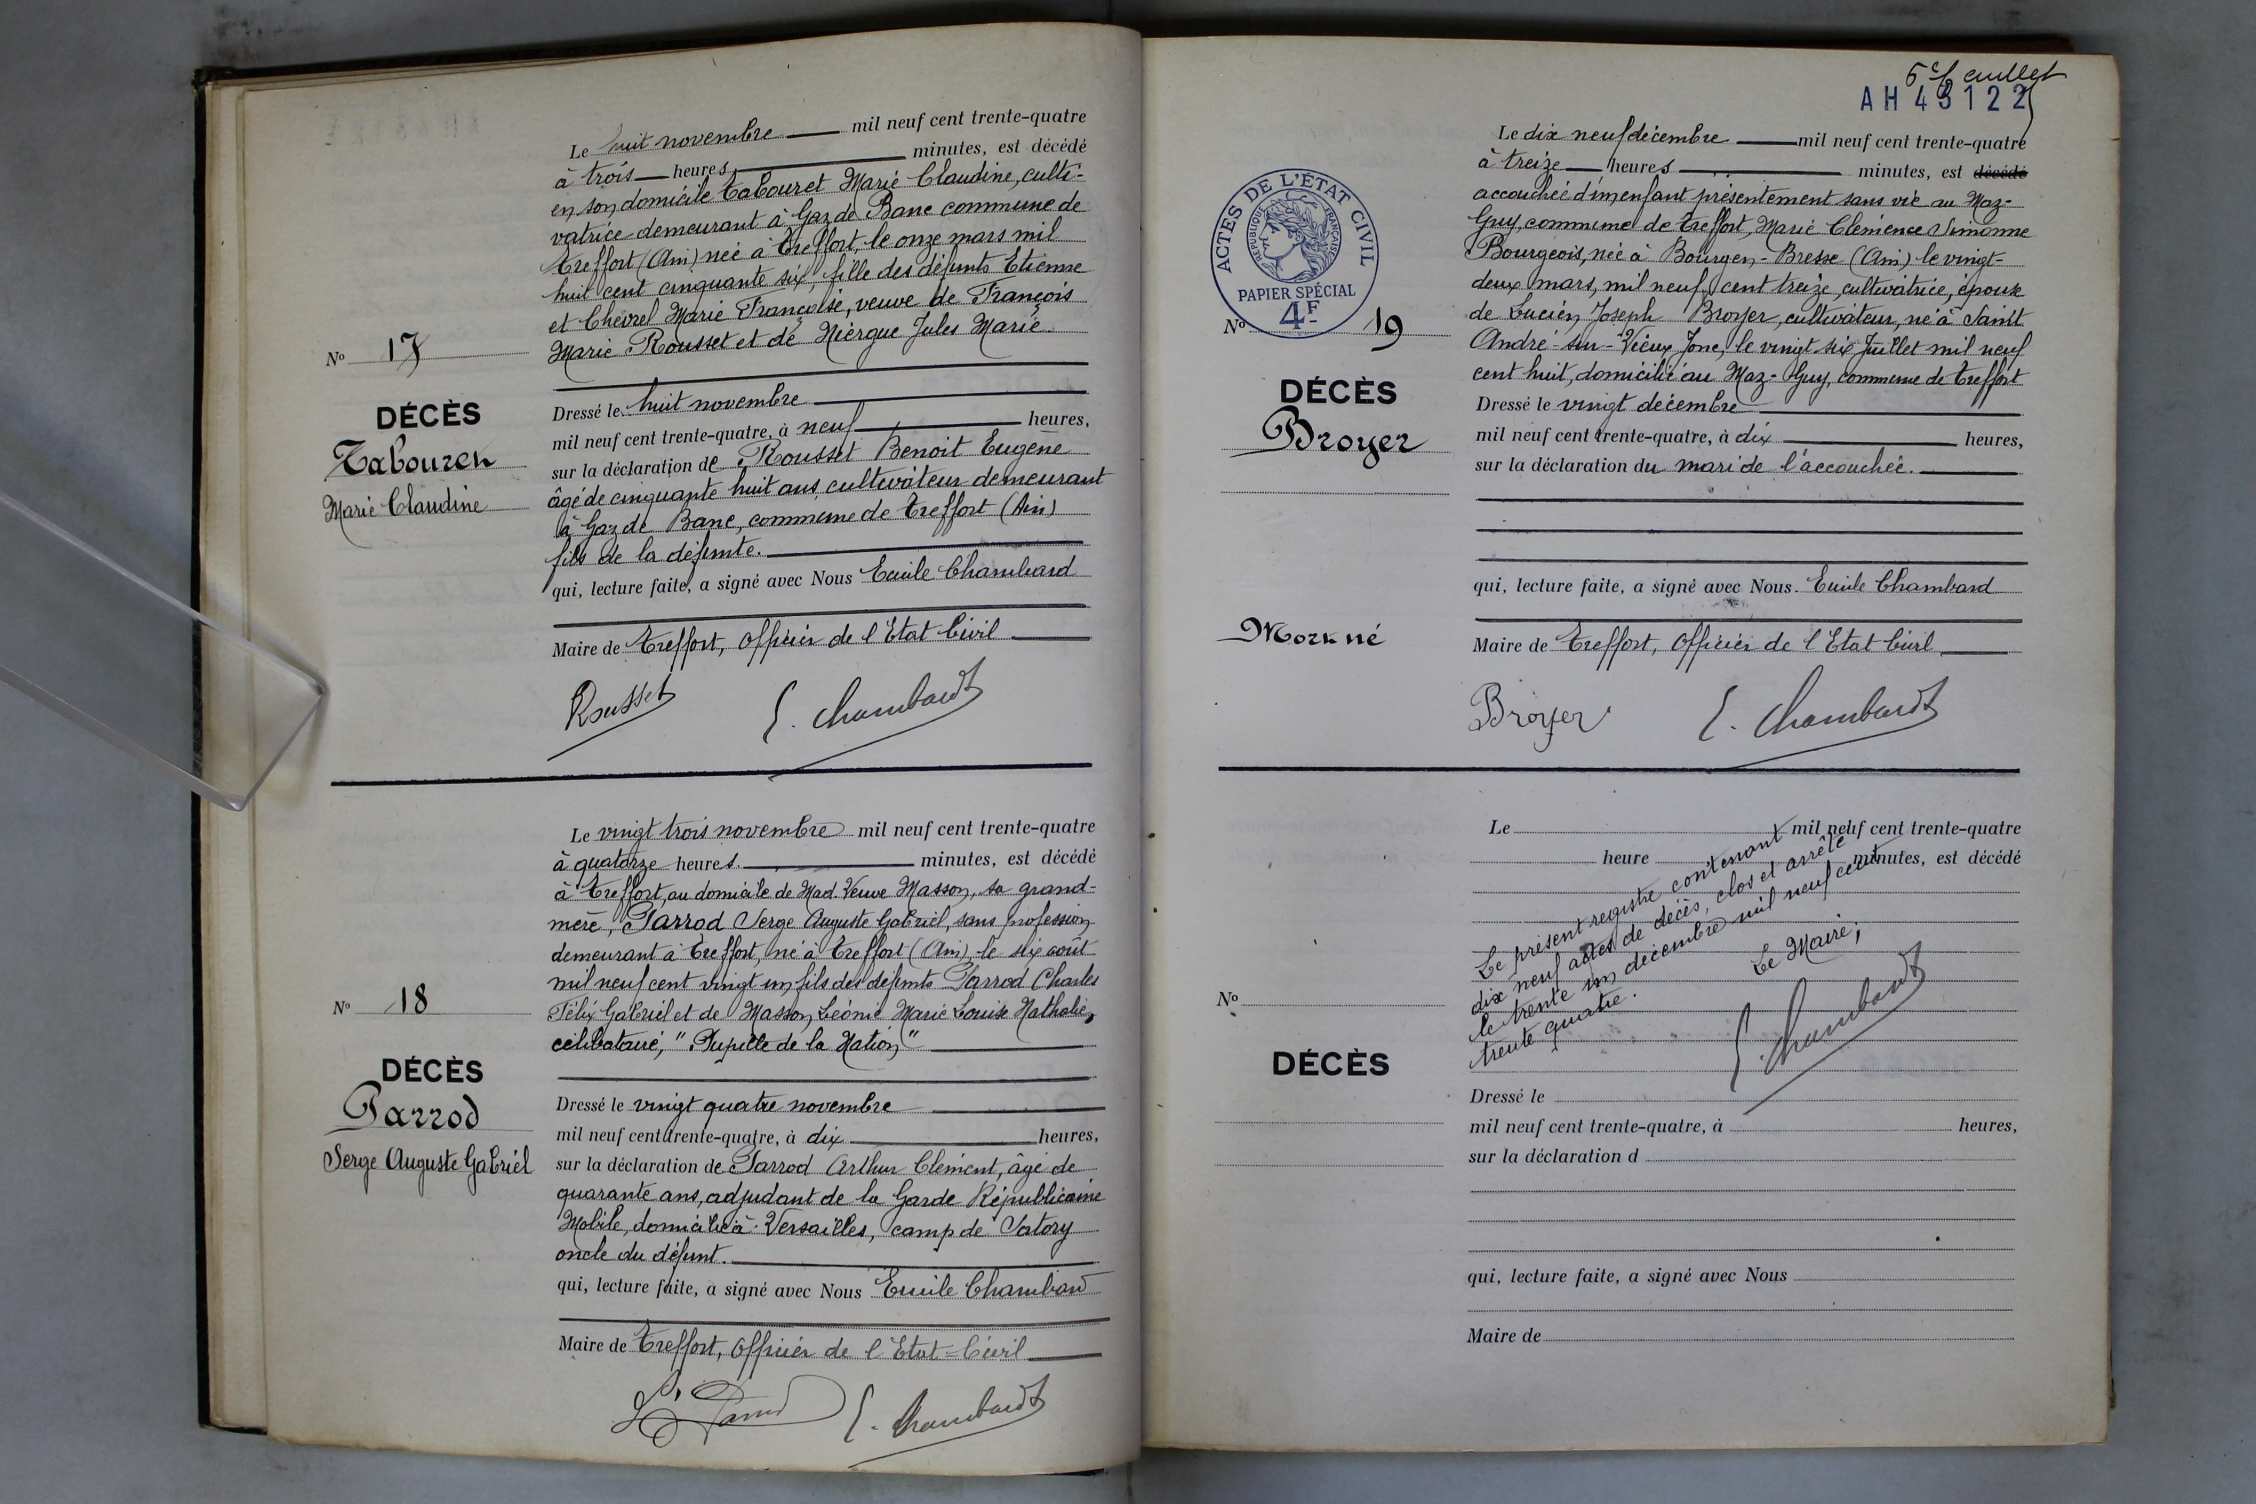 Le huit novembre mil neuf cent trente-quatre
à trois heures minutes, est décédé
en son domicile Tabouret Marie Claudine, culti-
vatrice demeurant à Gaz de Banc commune de
Treffort (Ain) née à Treffort, le onze mars mil
huit cent cinquante six, fille des défunts Etienne
et Chevrel Marie Françoise, veuve de François
Marie Rousset et de Nièrgue Jules Marie
No 17
DÉCÈS
Tabouret
Marie Claudine
Dressé le huit novembre
mil neuf cent trente-quatre, à neuf heures,
sur la déclaration de Rousset Benoit Eugène
âgé de cinquante huit ans, cultivateur demeurant
à Gaz de Banc, commune de Treffort (Ain)
fils de la défunte.
qui, lecture faite, a signé avec Nous Emile Chambard
Maire de Treffort, officier de l'Etat Civil
Rousset E. Chambard
Le vingt trois novembre mil neuf cent trente-quatre
à quatorze heures. minutes, est décédé
à Treffort, au domicile de Mad. Veuve Masson, sa grand-
mère, Parrod Serge Auguste Gabriel, sans profession
demeurant à Treffort, né à Treffort (Ain), le six août
mil neuf cent vingt un, fils des défunts Parrod Charles
Félix Gabriel et de Masson, Léonie Marie Louise Nathalie,
célibataire, "Pupille de la Nation"
No 18
DÉCÈS
Parrod
Serge Auguste Gabriel
Dressé le vingt quatre novembre
mil neuf cent trente-quatre, à dix heures,
sur la déclaration de Parrod Arthur Clément, âgé de
quarante ans, adjudant de la Garde Républicaine
Mobile, domicilié à Versailles, camp de Satory
oncle du défunt.
qui, lecture faite, a signé avec Nous Emile Chambard
Maire de Treffort, officier de l'Etat-Civil
Parrod E. Chambard
5e feuillet
AH43122
ACTES DE L'ÉTAT CIVIL
RÉPUBLIQUE FRANÇAISE
PAPIER SPÉCIAL
4F
Le dix neuf décembre mil neuf cent trente-quatre
à treize heures minutes, est décédé
accouchée d'un enfant présentement sans vie au Maz-
Guy, commune de Treffort, Marie Clémence Simonne
Bourgeois, née à Bourg-en-Bresse (Ain) le vingt-
deux mars, mil neuf cent treize, cultivatrice, épouse
de Lucien Joseph Broyer, cultivateur, né à Saint
André-sur-Vieux Jonc, le vingt six Juillet mil neuf
cent huit, domicilié au Maz-Guy, commune de Treffort
No 19
DÉCÈS
Broyer
Mort né
Dressé le vingt décembre
mil neuf cent trente-quatre, à dix heures,
sur la déclaration du mari de l'accouchée.
qui, lecture faite, a signé avec Nous. Emile Chambard
Maire de Treffort, Officier de l'Etat Civil
Broyer E. Chambard
Le mil neuf cent trente-quatre
heure minutes, est décédé
Le présent registre contenant
dix neuf actes de décès, clos et arrêté
le trente un décembre mil neuf cent
trente quatre.
Le Maire,
E. Chambard
No
DÉCÈS
Dressé le
mil neuf cent trente-quatre, à heures,
sur la déclaration d
qui, lecture faite, a signé avec Nous
Maire de